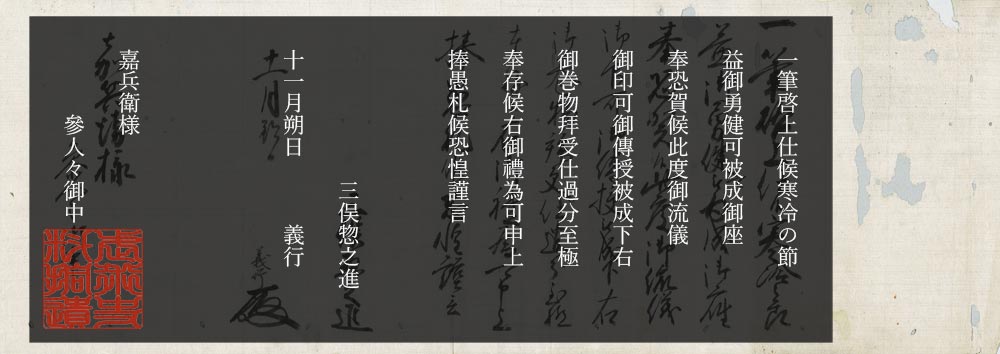 一筆啓上仕候寒冷の節
益御勇健可被成御座
奉恐賀候此度御流儀
御印可御傳授被成下右
御巻物拜受仕過分至極
奉存候右御禮為可申上
捧愚札候恐惶謹言
三俣惣之進
十一月朔日 義行
嘉兵衛様
參人々御中